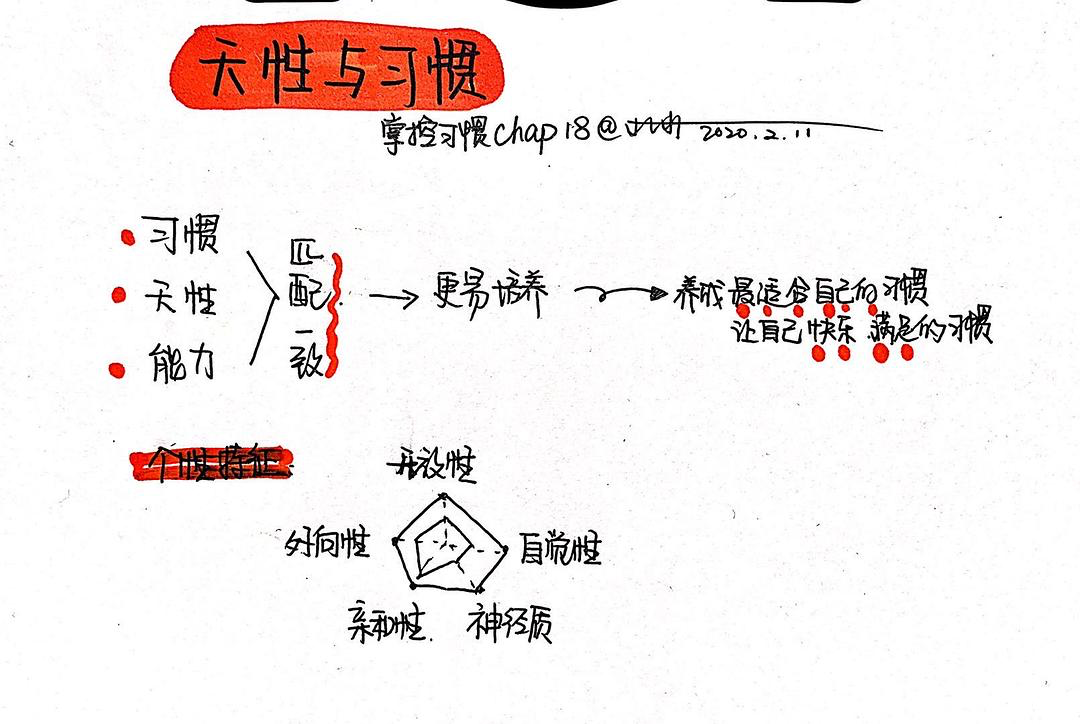 天性与习惯
掌控习惯chap 18 @ 2020.2.11
习惯
天性
能力
匹配一致
更易培养
养成最适合自己的习惯
让自己快乐 满足的习惯
个性特征
开放性
外向性
自觉性
亲和性.
神经质